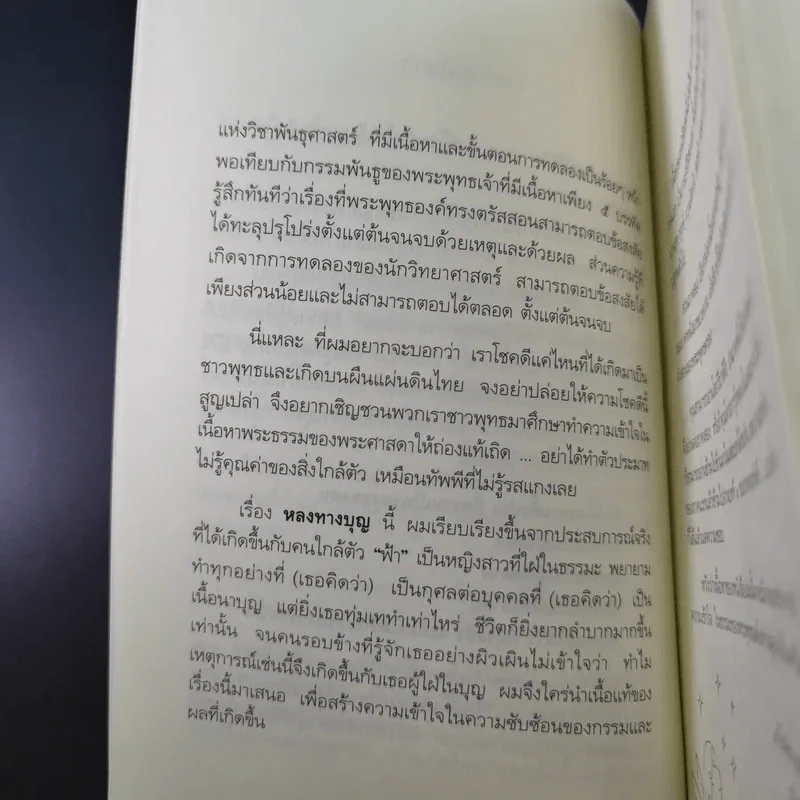 แห่งวิชาพันธุศาสตร์ ที่มีเนื้อหาและขั้นตอนการทดลองเป็นร้อยๆ หน้า
พอเทียบกับกรรมพันธุของพระพุทธเจ้าที่มีเนื้อหาเพียง ๕ บรรทัด
รู้สึกทันทีว่าเรื่องที่พระพุทธองค์ทรงตรัสสอนสามารถตอบข้อสงสัย
ได้ทะลุปรุโปร่งตั้งแต่ต้นจนจบด้วยเหตุและด้วยผล ส่วนความรู้ที่
เกิดจากการทดลองของนักวิทยาศาสตร์ สามารถตอบข้อสงสัยได้
เพียงส่วนน้อยและไม่สามารถตอบได้ตลอด ตั้งแต่ต้นจนจบ
นี่แหละ ที่ผมอยากจะบอกว่า เราโชคดีแค่ไหนที่ได้เกิดมาเป็น
ชาวพุทธและเกิดบนผืนแผ่นดินไทย จงอย่าปล่อยให้ความโชคดีนี้
สูญเปล่า จึงอยากเชิญชวนพวกเราชาวพุทธมาศึกษาทำความเข้าใจใน
เนื้อหาพระธรรมของพระศาสดาให้ถ่องแท้เถิด ... อย่าได้ทำตัวประมาท
ไม่รู้คุณค่าของสิ่งใกล้ตัว เหมือนทัพพีที่ไม่รู้รสแกงเลย
เรื่อง หลงทางบุญ นี้ ผมเรียบเรียงขึ้นจากประสบการณ์จริง
ที่ได้เกิดขึ้นกับคนใกล้ตัว “ฟ้า” เป็นหญิงสาวที่ใฝ่ในธรรมะ พยายาม
ทำทุกอย่างที่ (เธอคิดว่า) เป็นกุศลต่อบุคคลที่ (เธอคิดว่า) เป็น
เนื้อนาบุญ แต่ยิ่งเธอทุ่มเททำเท่าไหร่ ชีวิตก็ยิ่งยากลำบากมากขึ้น
เท่านั้น จนคนรอบข้างที่รู้จักเธออย่างผิวเผินไม่เข้าใจว่า ทำไม
เหตุการณ์เช่นนี้จึงเกิดขึ้นกับเธอผู้ใฝ่ในบุญ ผมจึงใคร่นำเนื้อแท้ของ
เรื่องนี้มาเสนอ เพื่อสร้างความเข้าใจในความซับซ้อนของกรรมและ
ผลที่เกิดขึ้น